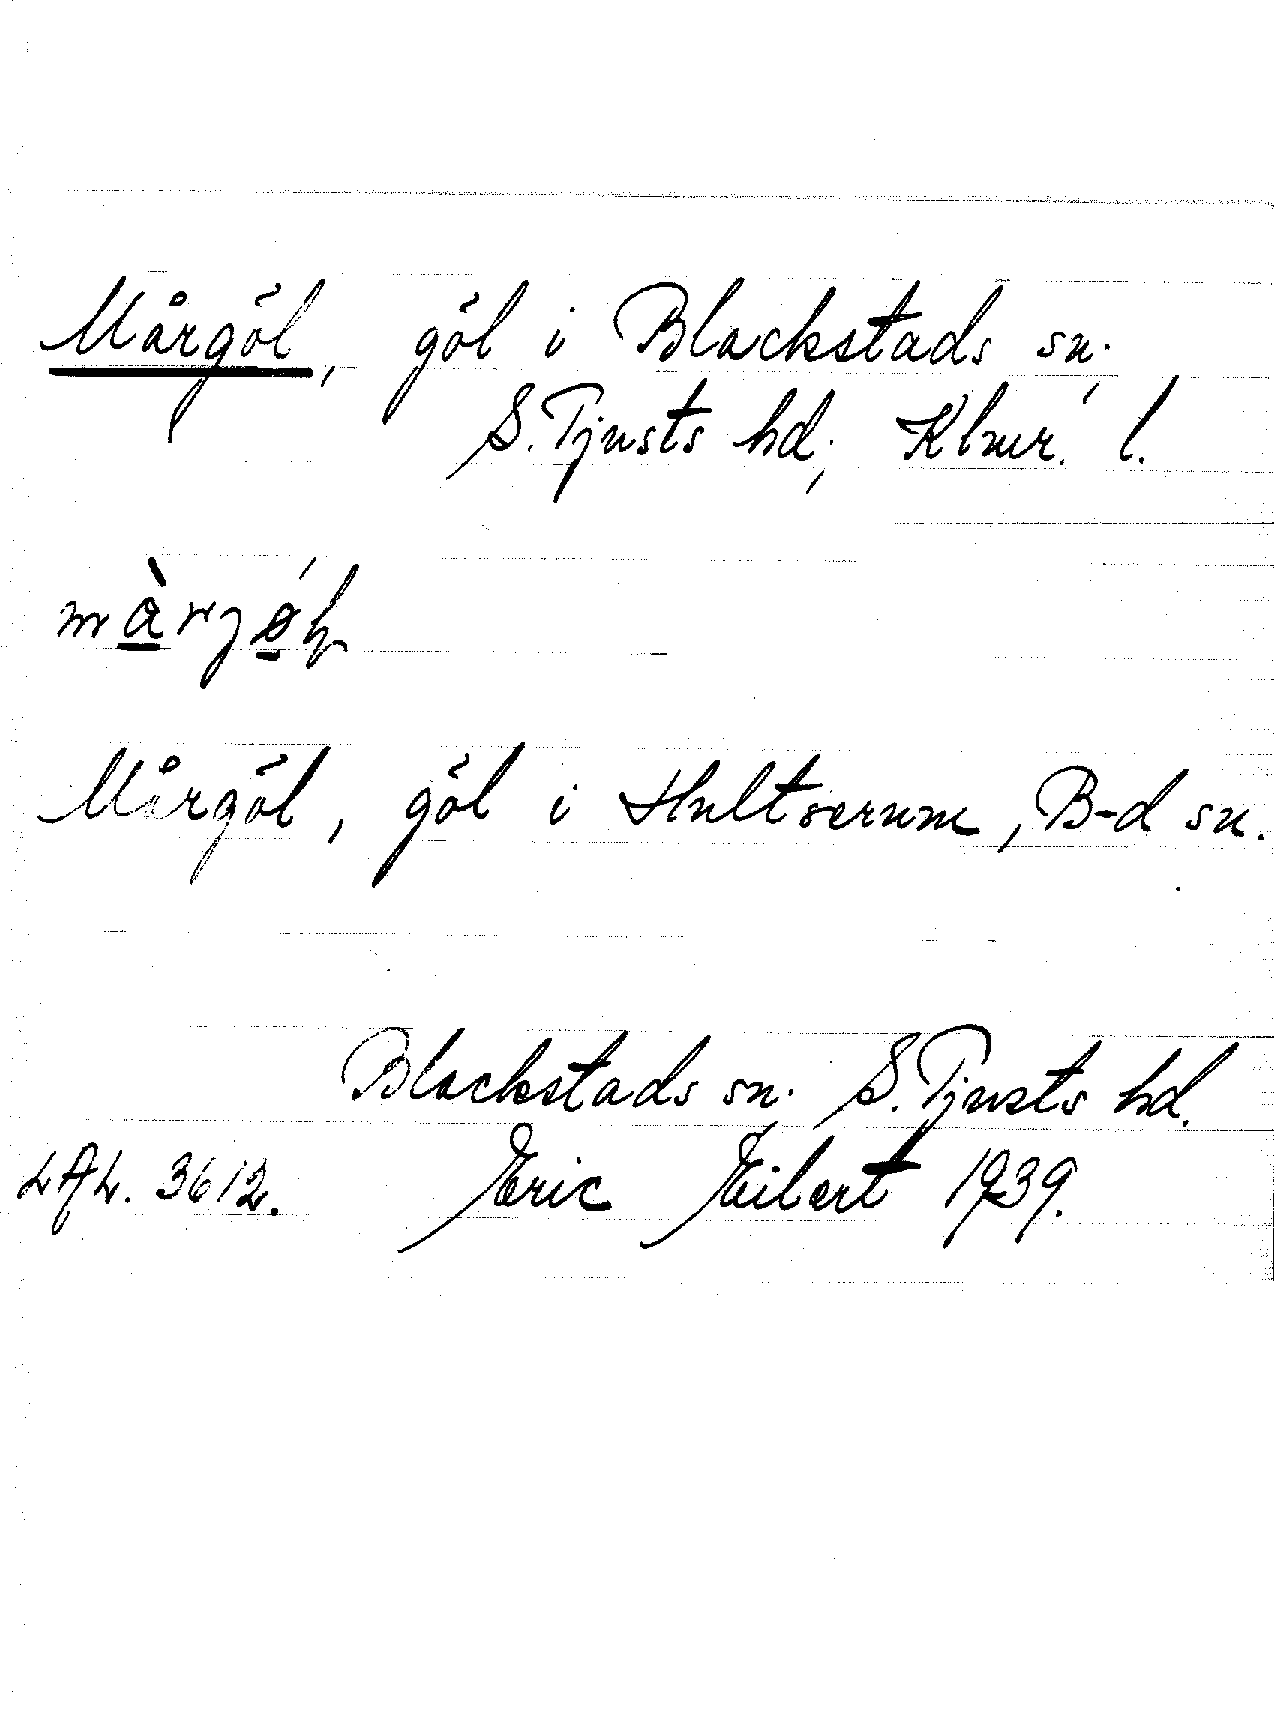 Mårgöl, göl i Blackstads sn.,
S. Tjusts hd., Klmr. l.
Mårgöl, göl i Hultserum, B-d sn.
Blackstads sn. S. Tjusts hd.
LAL. 3612. Eric Eilert 1939.